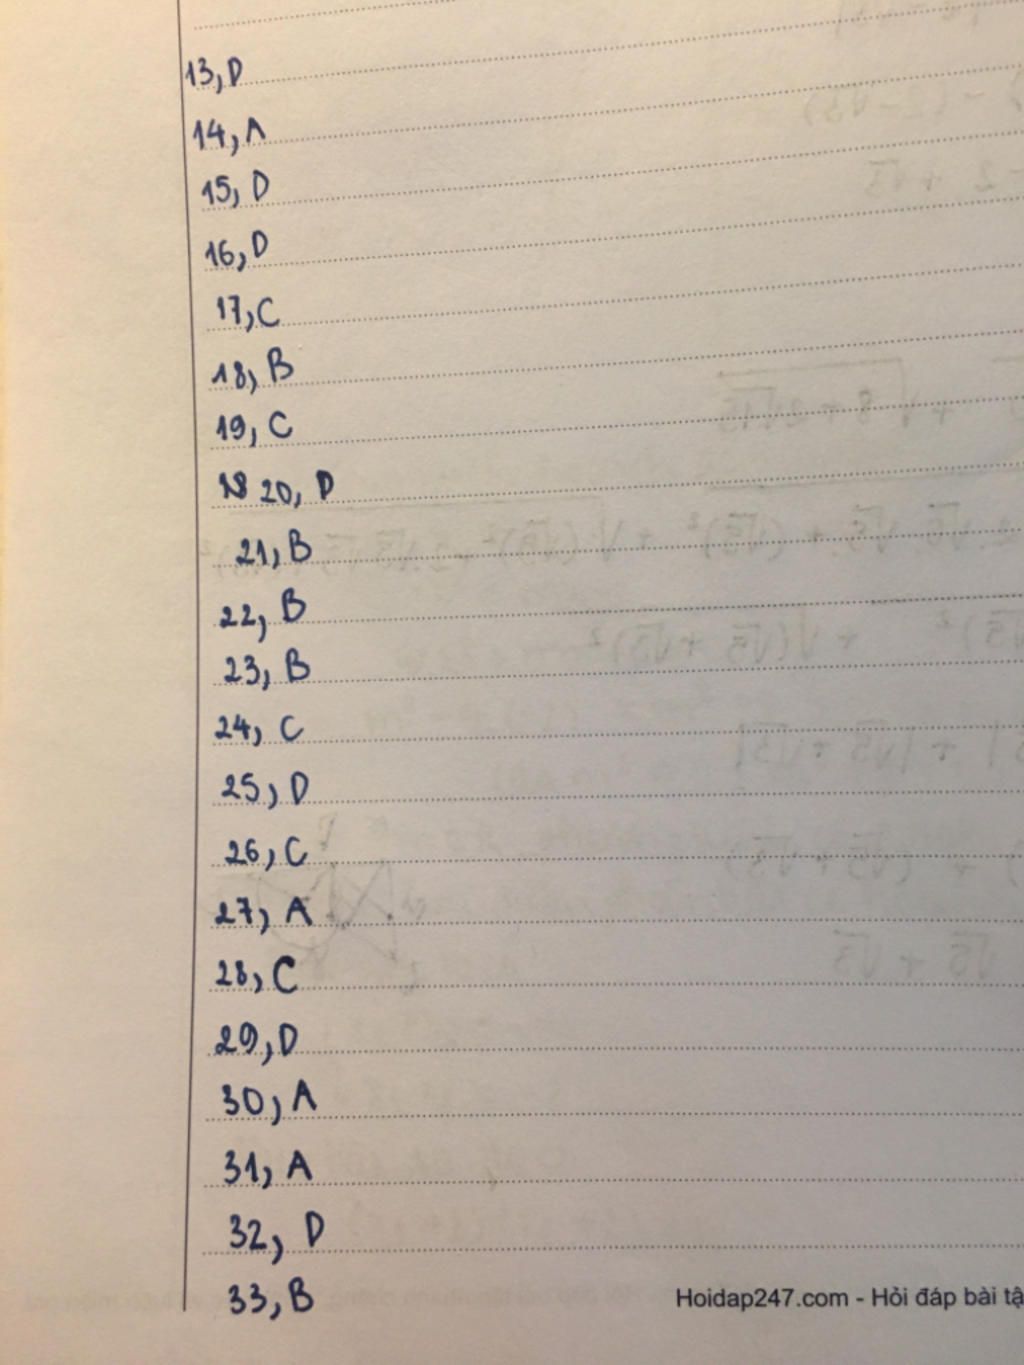 13, D
14, A
15, D
16, D
17, C
18, B
19, C
20, D
21, B
22, B
23, B
24, C
25, D
26, C
27, A
28, C
29, D
30, A
31, A
32, D
33, B
Hoidap247.com - Hỏi đáp bài tậ